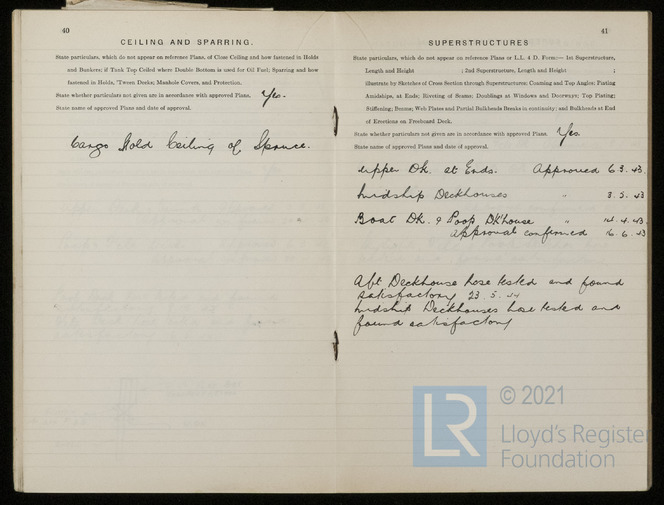 40
CEILING AND SPARRING.
State particulars, which do not appear on reference Plans, of Close Ceiling and how fastened in Holds
and Bunkers; if Tank Top Ceiled where Double Bottom is used for Oil Fuel; Sparring and how
fastened in Holds, 'Tween Decks; Manhole Covers, and Protection.
State whether particulars not given are in accordance with approved Plans. Yes.
State name of approved Plans and date of approval.
Cargo Hold Ceiling of Spruce.
41
SUPERSTRUCTURES
State particulars, which do not appear on reference Plans or L.L. 4 D. Form:— 1st Superstructure,
Length and Height ; 2nd Superstructure, Length and Height ;
illustrate by Sketches of Cross Section through Superstructures: Coaming and Top Angles; Plating
Amidships, at Ends; Riveting of Seams; Doublings at Windows and Doorways; Top Plating;
Stiffening; Beams; Web Plates and Partial Bulkheads Breaks in continuity; and Bulkheads at End
of Erections on Freeboard Deck.
State whether particulars not given are in accordance with approved Plans. Yes.
State name of approved Plans and date of approval.
Upper Dk. at Ends. Approved 6.3.43.
Midship Deckhouses " 3.5.43
Boat Dk. & Poop Dk'house " 14.4.43.
approval confirmed 16.6.43
Aft Deckhouse hose tested and found
satisfactory 23.5.44
Midship Deckhouses hose tested and
found satisfactory
LR
© 2021
Lloyd's Register
Foundation